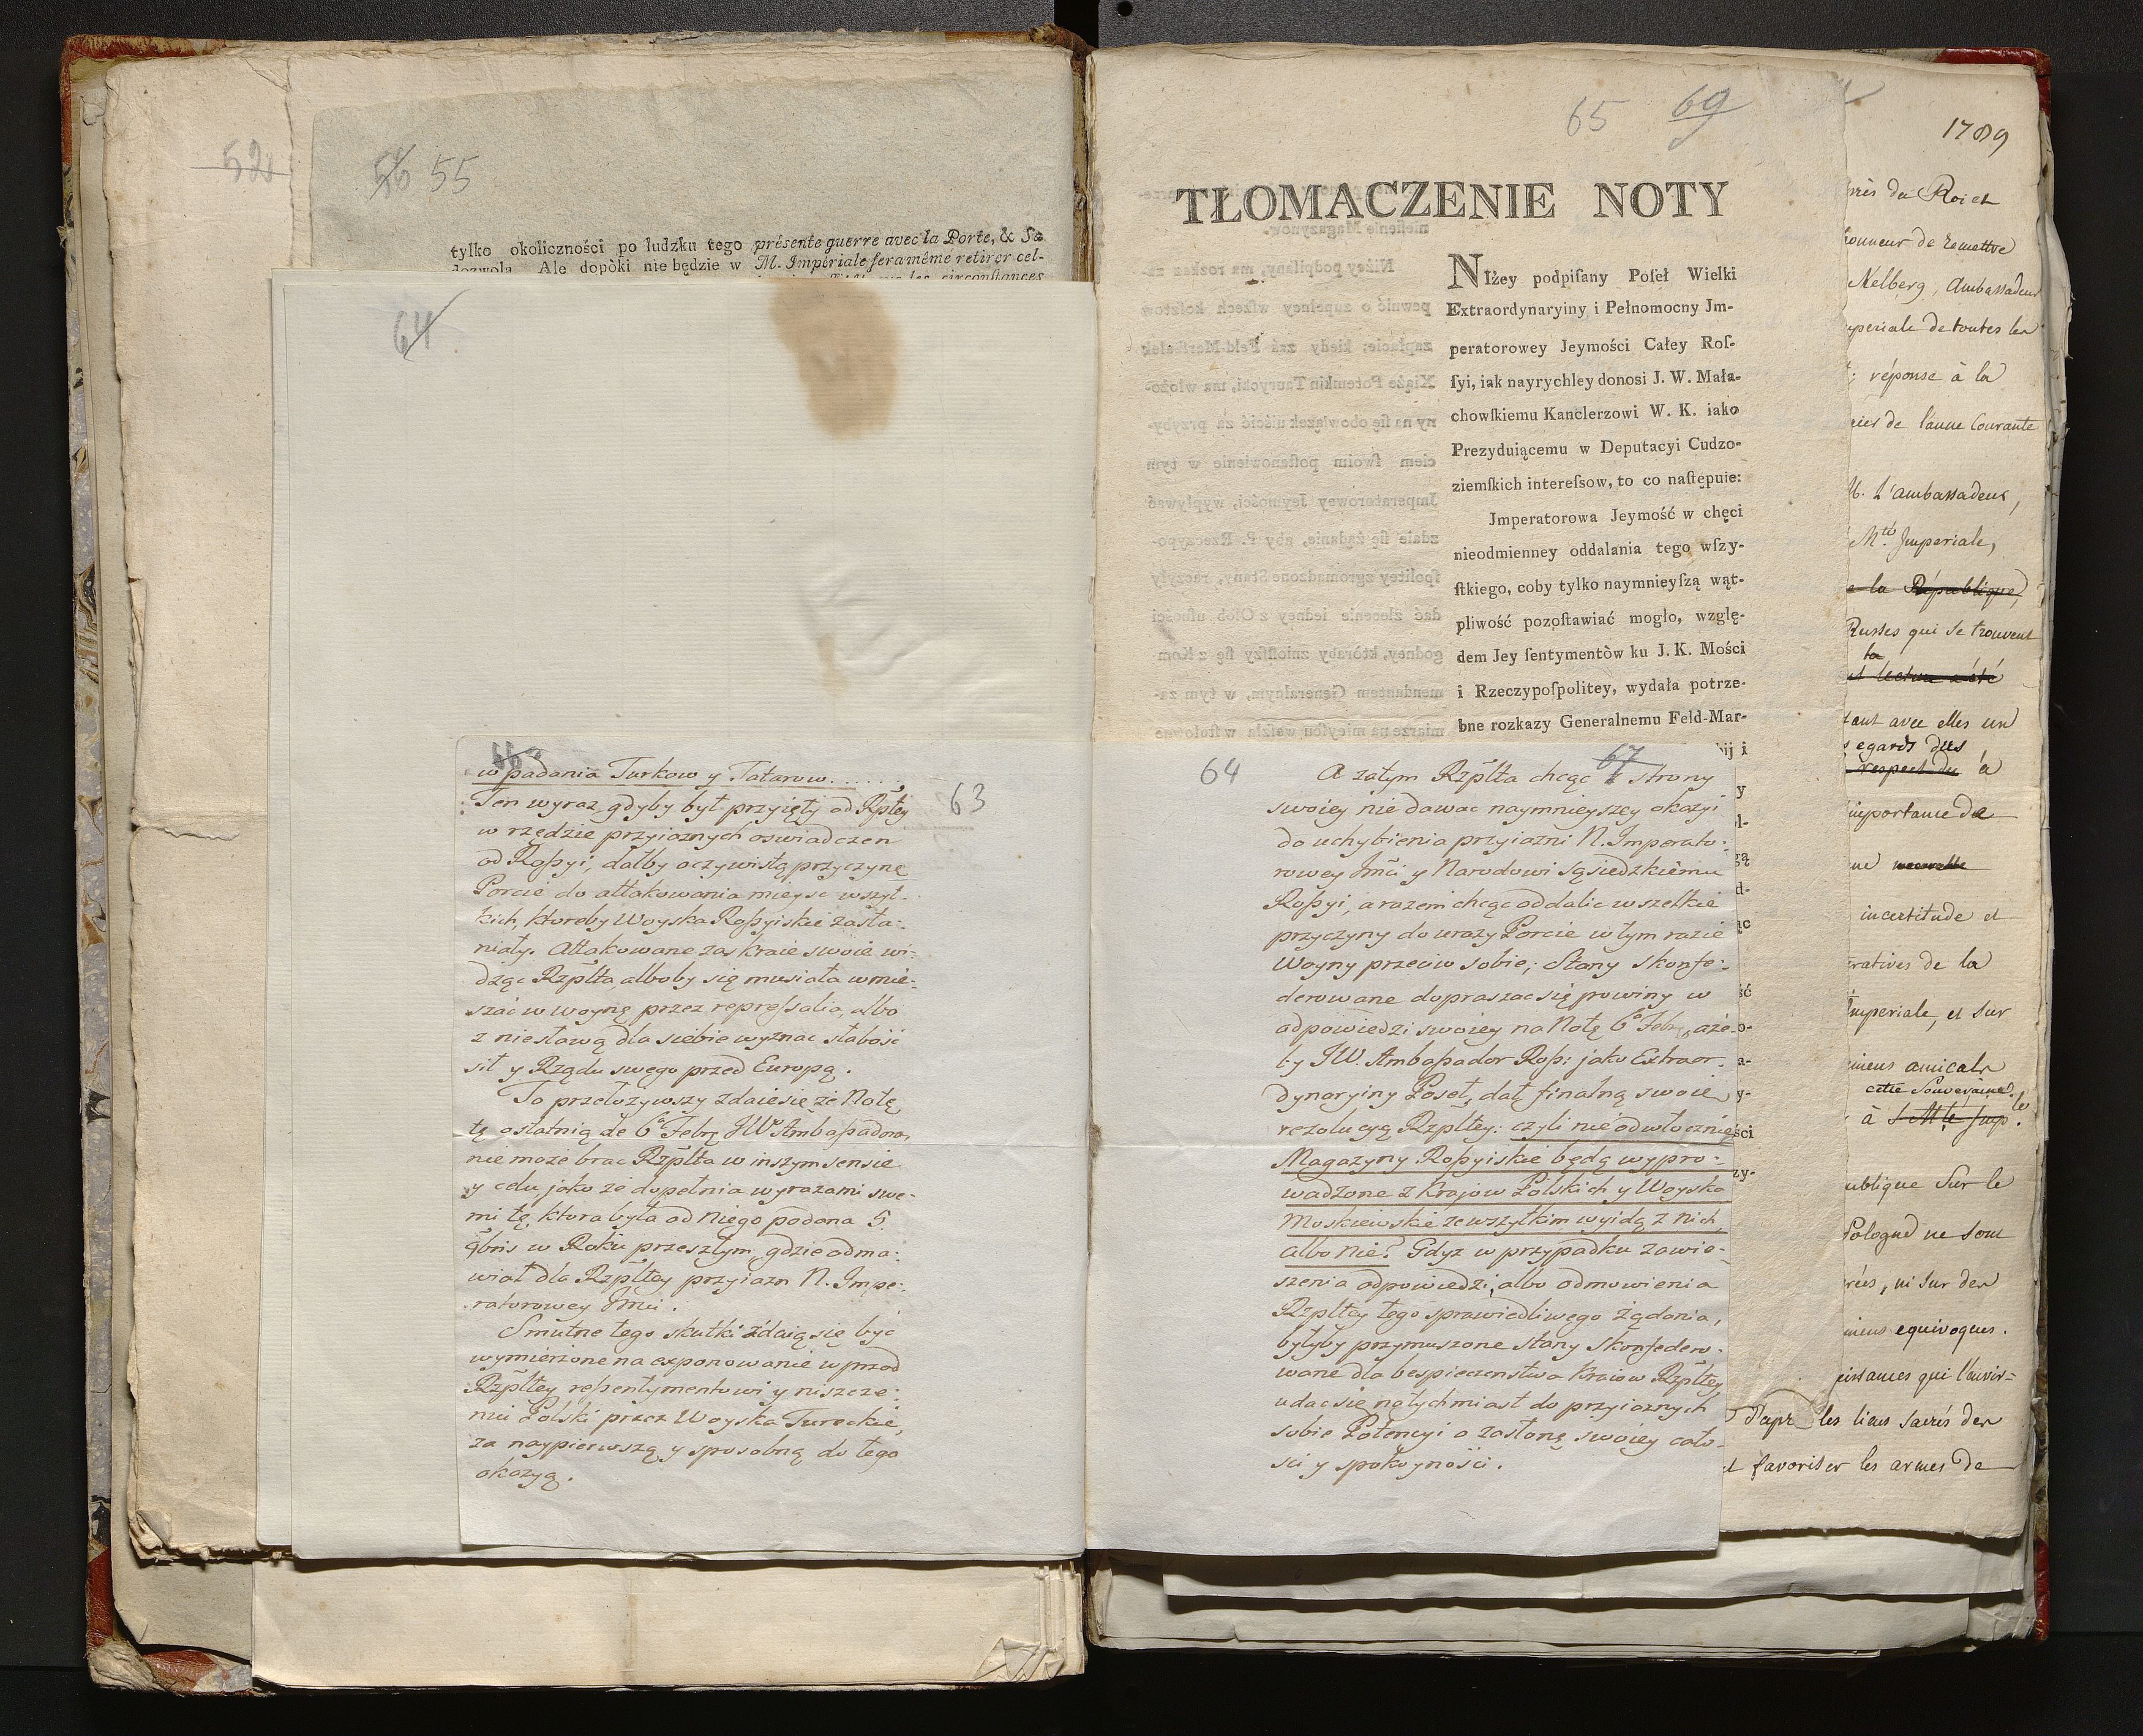 52
56 55
tylko okoliczności po ludzku tego présente guerre avec la Porte, & Sa
dozwolą. Ale dopòki nie będzie w M. Impèriale fera même retirer cel-
les circonſtances
64
66
w padania Turkow y Tatarow......
63
Ten wyraz, gdyby był przyięty od Rpłtey
w rzędzie przyiaznych oswiadczen
od Roſsyi, dałby oczywistą przyczynę
Porcie do attakowania mieysc wszyt-
kich, ktoreby Woyska Roſsyiskie zasła-
niały. Attakowane zas kraie swoie wi-
dząc Rzpłta, alboby się musiała wmie-
szać w woynę przez repreſsalia, albo
z niesławą dla siebie wyznac słabość
sił y Rządu swego przed Europą.
To przełożywszy zdaie się ze Notę
tę ostatnią de 6ª Febrę JWº Ambaſsadora,
nie może brac Rzplta w inszym sensie
y celu, jako że dopełnia wyrazami swe-
mi tę, ktora była od Niego podana 5.
9bris w Roku przeszłym, gdzie odma-
wiał dla Rzpłtey przyiazn N. Impe-
ratorowey Jmci.
Smutne tego skutki zdaią się być
wymierzone na exponowanie wprzod
Rzpłtey reſsentymentowi y niszcze-
niu Polski przez Woyska Tureckie,
za naypierwszą y sposobną do tego
okazyą.
65 69
TŁOMACZENIE NOTY
NIżey podpiſany Poſeł Wielki
Extraordynaryiny i Pełnomocny Jm-
peratorowey Jeymości Całey Roſ-
ſyi, iak nayrychley donosi J. W. Mała-
chowſkiemu Kanclerzowi W. K. iako
Prezyduiącemu w Deputacyi Cudzo-
ziemſkich intereſsow, to co naſtępuie:
Jmperatorowa Jeymość w chęci
nieodmienney oddalania tego wſzy-
ſtkiego, coby tylko naymnieyſzą wąt-
pliwość pozoſtawiać mogło, wzglę-
dem Jey ſentymentòw ku J. K. Mości
i Rzeczypoſpolitey, wydała potrze-
bne rozkazy Generalnemu Feld-Mar-
64
67
A zatym Rzplta chcąc z strony
swoiey nie dawac naymnieyszey okazyi
do uchybienia przyiazni N. Imperato-
rowey Jmci y Narodowi Sąsiedzkiemu
Roſsyi, a razem chcąc oddalic wszelkie
przyczyny do urazy Porcie w tym razie
Woyny przeciw sobie; Stany skonfe-
derowane dopraszac się powiny w
odpowiedzi swoiey na Notę 6ª Febr, aże-
by JW. Ambaſsador Roſs: jako Extraor-
dynaryiny Poseł, dał finalną swoię
rezolucyą Rzpłtey: czyli nieodwłocznie
Magazyny Roſsyiskie będą wypro-
wadzone z Krajow Polskich y Woyska
Moskiewskie ze wszytkim wyidą z nich,
albo nie? Gdyz w przypadku zawie-
szenia odpowiedzi, albo odmowienia
Rzpłtey tego sprawiedliwego żądania,
byłyby przymuszone stany skonfedero-
wane dla bespieczenstwa kraiow Rzpłtey
udac się natychmiast do przyiaznych
sobie Potencyi o zasłonę swoiey cało-
sci y spokoyności.
1789
près du Roi et
honneur de remettre
Ambassadeur
Imperiale de toutes les
réponse à la
de l'année Courante
M. L'ambassadeur,
Mté. Imperiale,
e la République,
Russes qui se trouvent
la
et lecture a été
tant avec elles un
egards dus
respect du à
importance de
incertitude et
ratives de la
Imperiale, et sur
amicals
cette Souveraine.
à S. Mté Imple.
ublique Sur le
Pologne ne sont
ni sur des
equivoques.
puissances qui l'envir=
les liens sacrés des
et favoriser les armes de